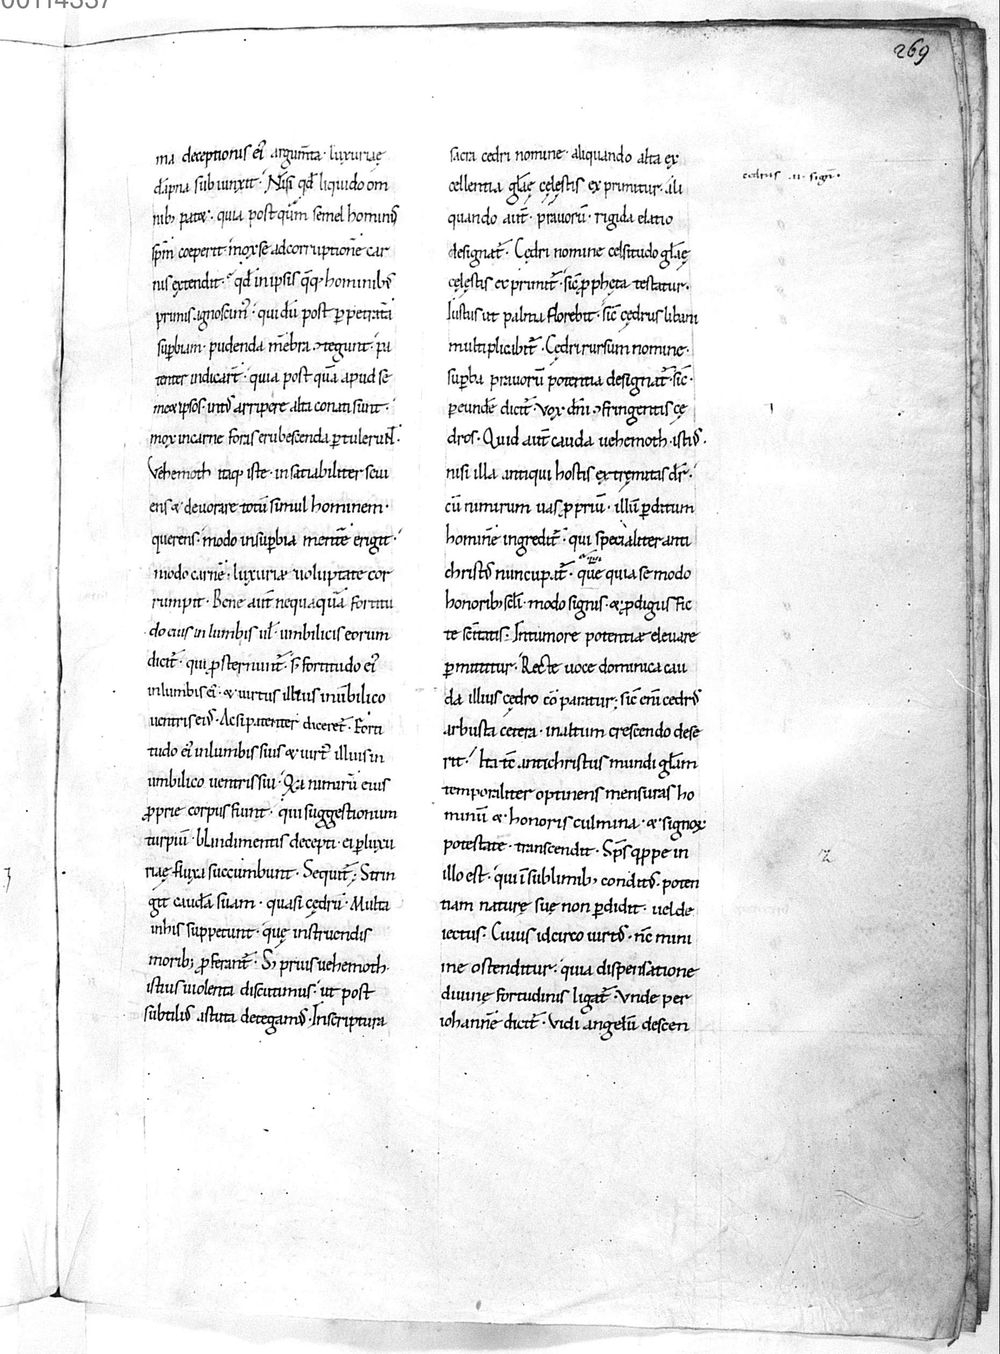 00114337
269
ma deceptionis ei᾽ argum̄ta· luxuriae
dāpna subiunxit· Nisi qd̄ liquido om
nib; patet· quia postquā semel hominis
sp̄m coeperit· mox se ad corruptionē car
nis extendit· qd̄ in ipsis q̨q; hominib;
primis ignoscim᾽· qui dū post p̱petrata
sup̱biam· pudenda m̄bra ɔtegunt· pa
tenter indicar̄t· quia post quā apud se
mox in carne foris erubescenda p̱tulerunt·
Vehemoth itaq; iste· insatiabiliter seui
ens & deuorare totū simul hominem·
querens· modo in sup̱bia mentē erigit·
modo carnē· luxuriae uoluptate cor
rumpit· Bene aut̄ nequaquā fortitu
do eius in lumbis ul̄ umbilicis eorum
dicit̄· qui p̱sternunt̄· s; fortitudo ei᾽
in lumbis ei᾽· & uirtus illius in ūbilico
uentris ei᾽· Ac si patenter diceret̄· Forti
tudo ei᾽ in lumbis suis & uirt᾽ illius in
umbilico uentris sui· Q̄a nimirū eius
p̱prie corpus fiunt· qui suggestionum
turpiū· blandimentis decepti· ei p̱ luxu
riae fluxa succumbunt· Sequit̄; Strin
git caudā suam· quasi cędrū· Multa
in his suppetunt· quę instruendis
morib; p̱ferant̄· S; prius uehemoth
istius uiolenta discutimus· ut post
subtilit᾽ astuta detegam᾽· In scriptura
sacra cedri nomine· aliquando alta ex
cellentia gl̄ae cęlestis exprimitur· ali
quando aut̄· prauorū· rigida elatio
designat̄· Cedri nomine celsitudo gl̄ae
cęlestis exprimit̄· sic̄ p̱pheta testatur·
Iustus ut palma florebit· sic̄ cędrus libani
multiplicabit̄· Cędri rursum nomine·
sup̱ba prauorū potentia designat̄· sic̄·
p̱ eundē dicit̄· Vox dn̄i ɔfringentis cę
dros· Quid aut̄ cauda uehemoth isti᾽·
nisi illa antiqui hostis extremitas dr̄·
cū nimirum uas p̱priū· illū p̱ditum
hominē ingredit̄· qui specialiter anti
christ᾽ nuncupat̄· quē quia se modo
honorib; scl̄i· modo signis· & p̱digiis fic
te sc̄itatis· In tumore potentiae eleuare
p̱mittitur· Recte uoce dominica cau
da illius cędro cōparatur; sic̄ eni᾽ cedr᾽
arbusta cetera· in altum crescendo dese
rit· Ita tc̄ antichristus mundi gl̄am
temporaliter optinens mensuras ho
minū & honoris culmina· & signor̄
potestate· transcendit· Sp̄s q̨ppe in
illo est· qui ī sublimib; condit᾽· poten
tiam naturę suę non p̱didit· uel de
iectus· Cuius idcirco uirt᾽· nc̄ mini
me ostenditur· quia dispensatione
diuinę fortudinis ligat̄· Vnde per
iohannē dicit̄· Vidi angelū descen
cedrus .ii. sign̄·